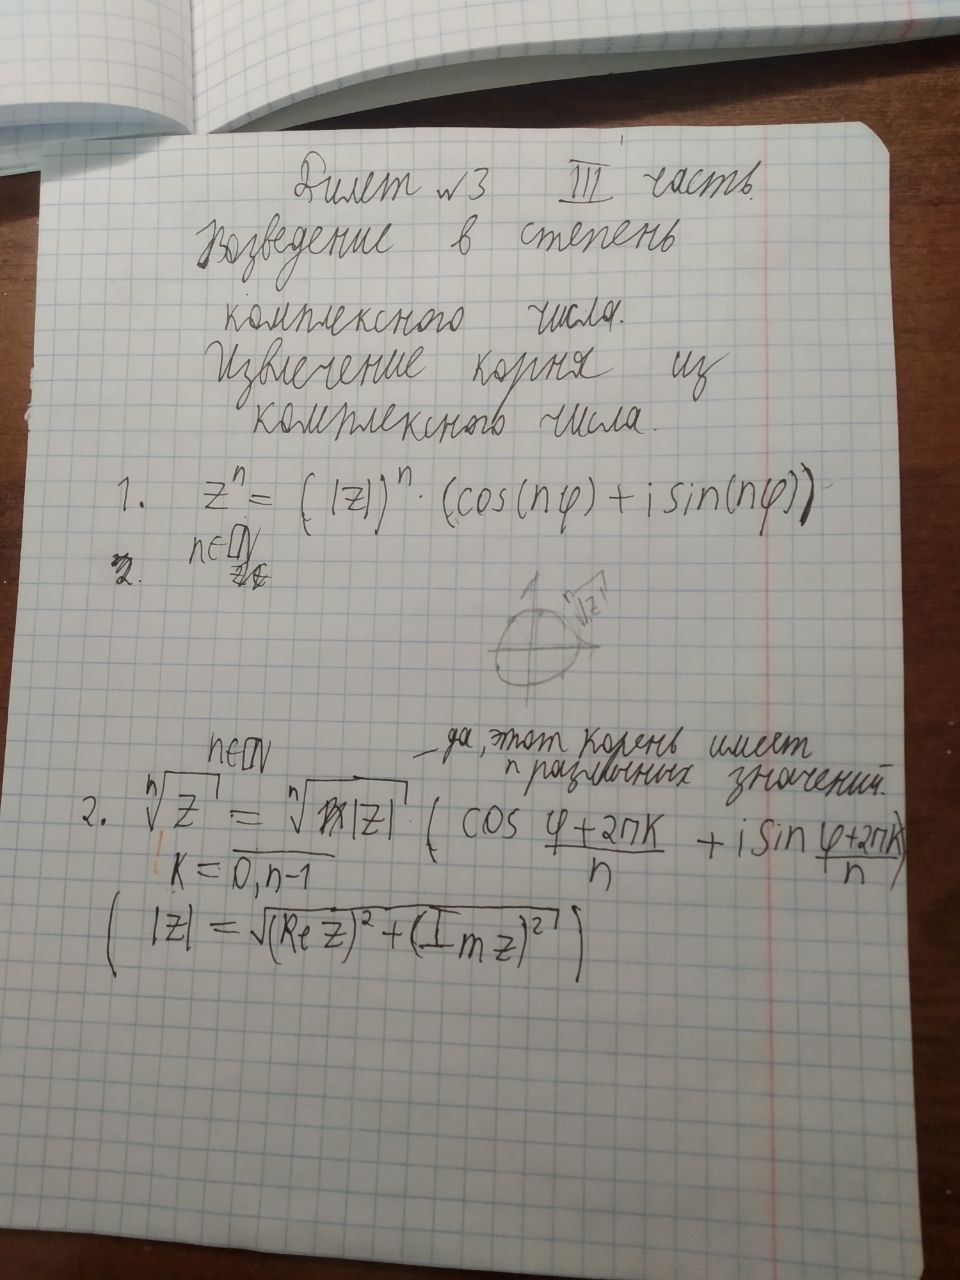 Билет №3 III часть.
Возведение в степень
комплексного числа.
Извлечение корня из
комплексного числа.
1. zⁿ = (|z|)ⁿ · (cos(nφ) + i sin(nφ))
n∈ℕ
2.
ⁿ√|z|
n∈ℕ
– да, этот корень имеет
n различных значений.
2. ⁿ√z = ⁿ√|z| · (cos (φ+2πk)/n + i sin (φ+2πk)/n)
K = 0,n-1
(|z| = √((Re z)² + (Im z)²))